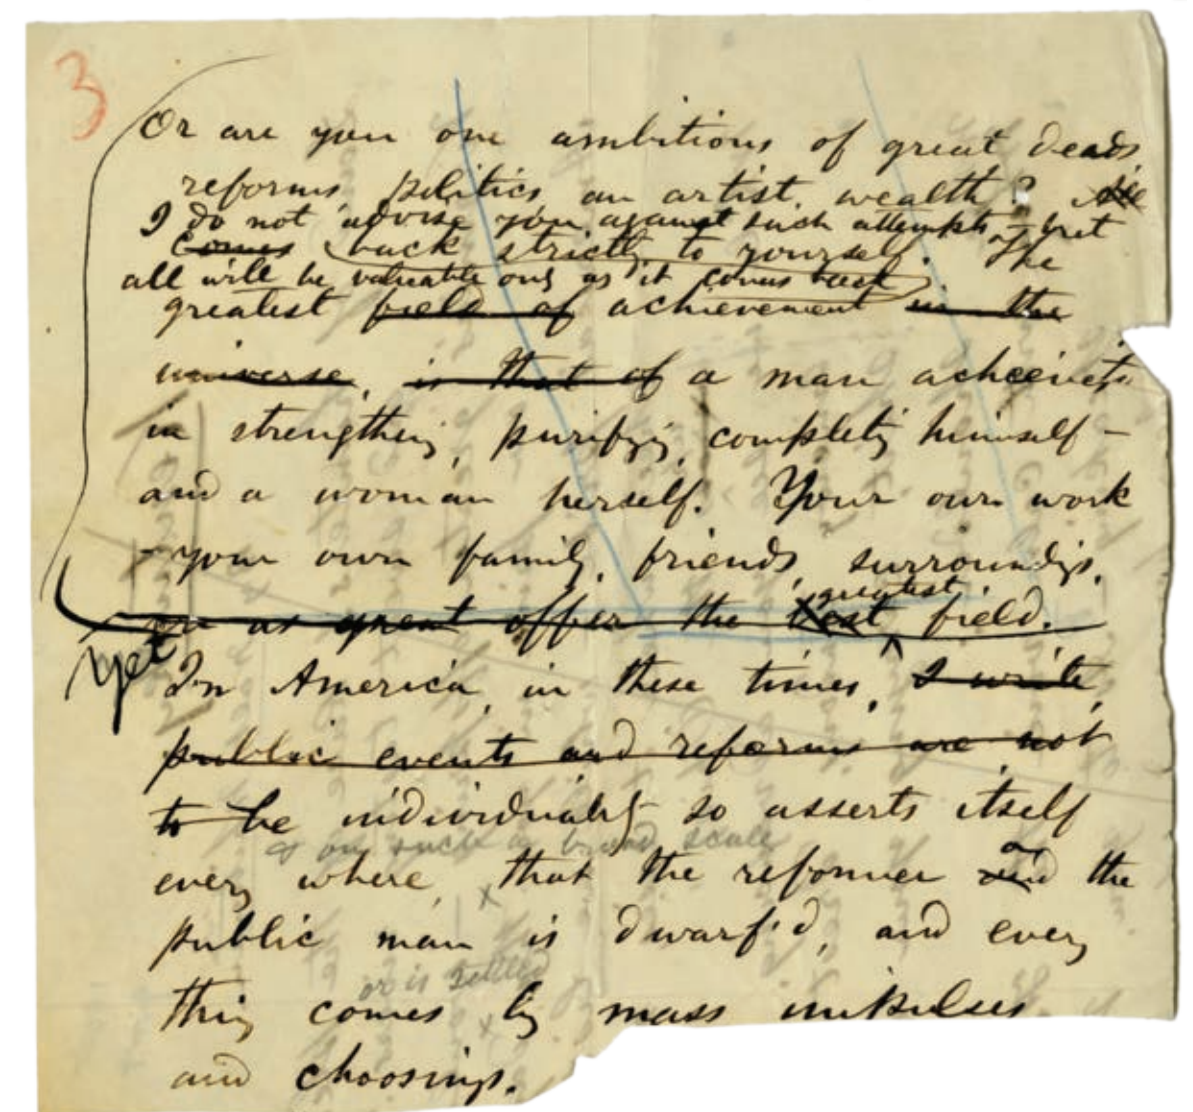 3
Or are you one ambitious of great deeds
reforms, politics an artist, wealth? All
I do not advise you against such attempts – but
Comes back strictly to yourself. The
all will be valuable only as it comes back
greatest field of achievement in the
universe, is that of a man achieves
in strengthening, purifying, completing himself –
and a woman herself. Your own work
– your own family, friends, surroundings,
greatest
are as great offer the best field.
Yet
In America, in these times, I write,
public events and reforms are not
to be individuality so asserts itself
& on such a broad scale
every where, that the reformer and or the
public man is dwarf'd, and every
or is settled
thing comes by mass impulses
and choosings.